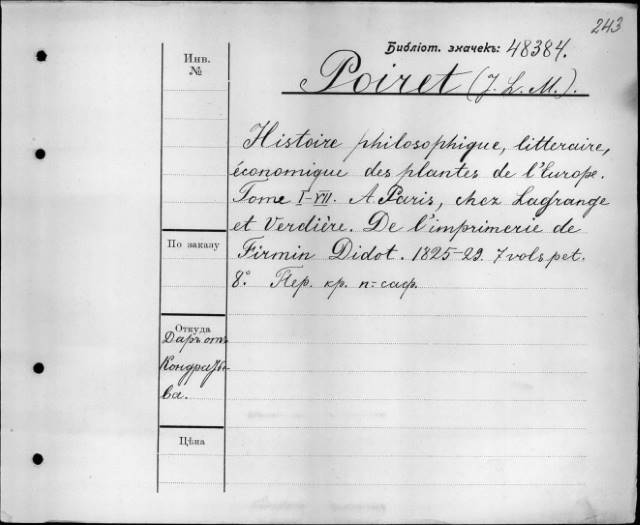 243
Библіот. значекъ: 48384.
Инв.
№
Poiret (J. L. M.).
Histoire philosophique, litteraire,
économique des plantes de l'Europe.
Tome I-VII. A Paris, chez Lagrange
et Verdière. De l'imprimerie de
По заказу
Firmin Didot. 1825-29. 7 vols pet.
8°. Пер. кр. п=саф.
Откуда
Даръ отъ
Кондратье-
ва.
Цѣна